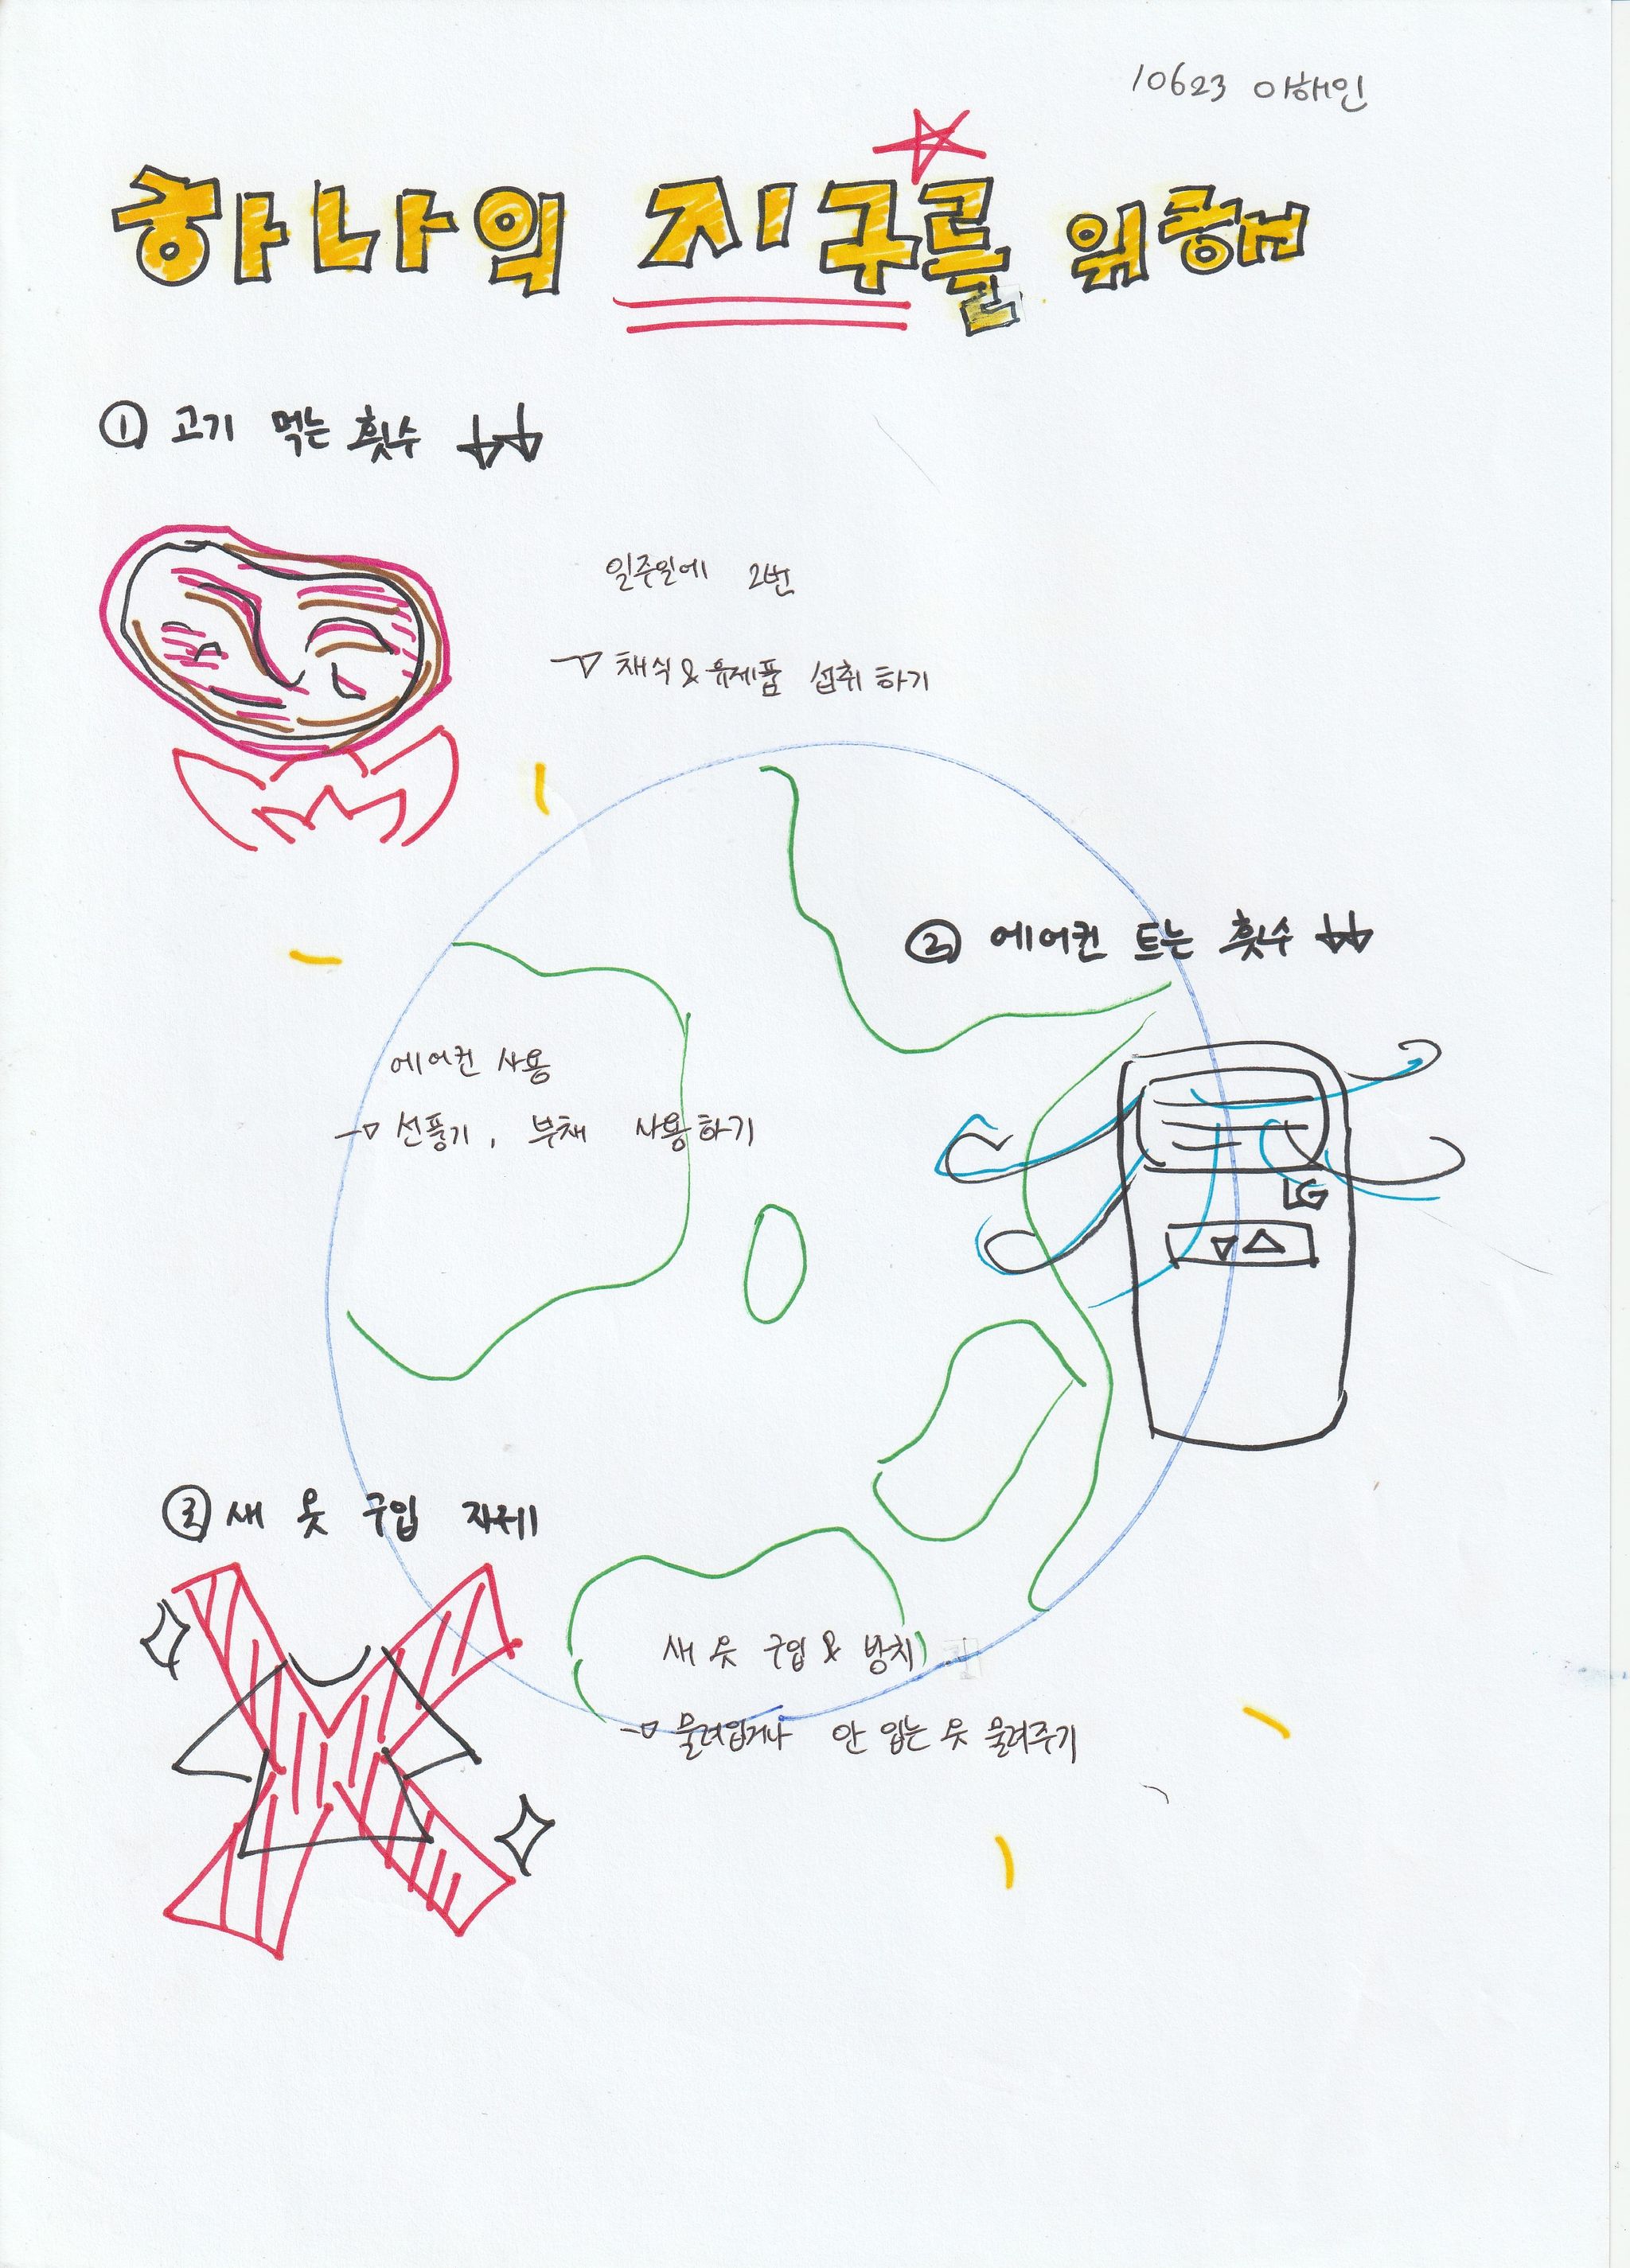 10623 이해인
하나의 지구를 위해
① 고기 먹는 횟수 ↓↓
일주일에 2번
→ 채식 & 유제품 섭취 하기
② 에어컨 트는 횟수 ↓↓
에어컨 사용
→ 선풍기, 부채 사용하기
LG
▽△
③ 새 옷 구입 자제
새 옷 구입 & 방치
→ 물려입거나 안 입는 옷 물려주기